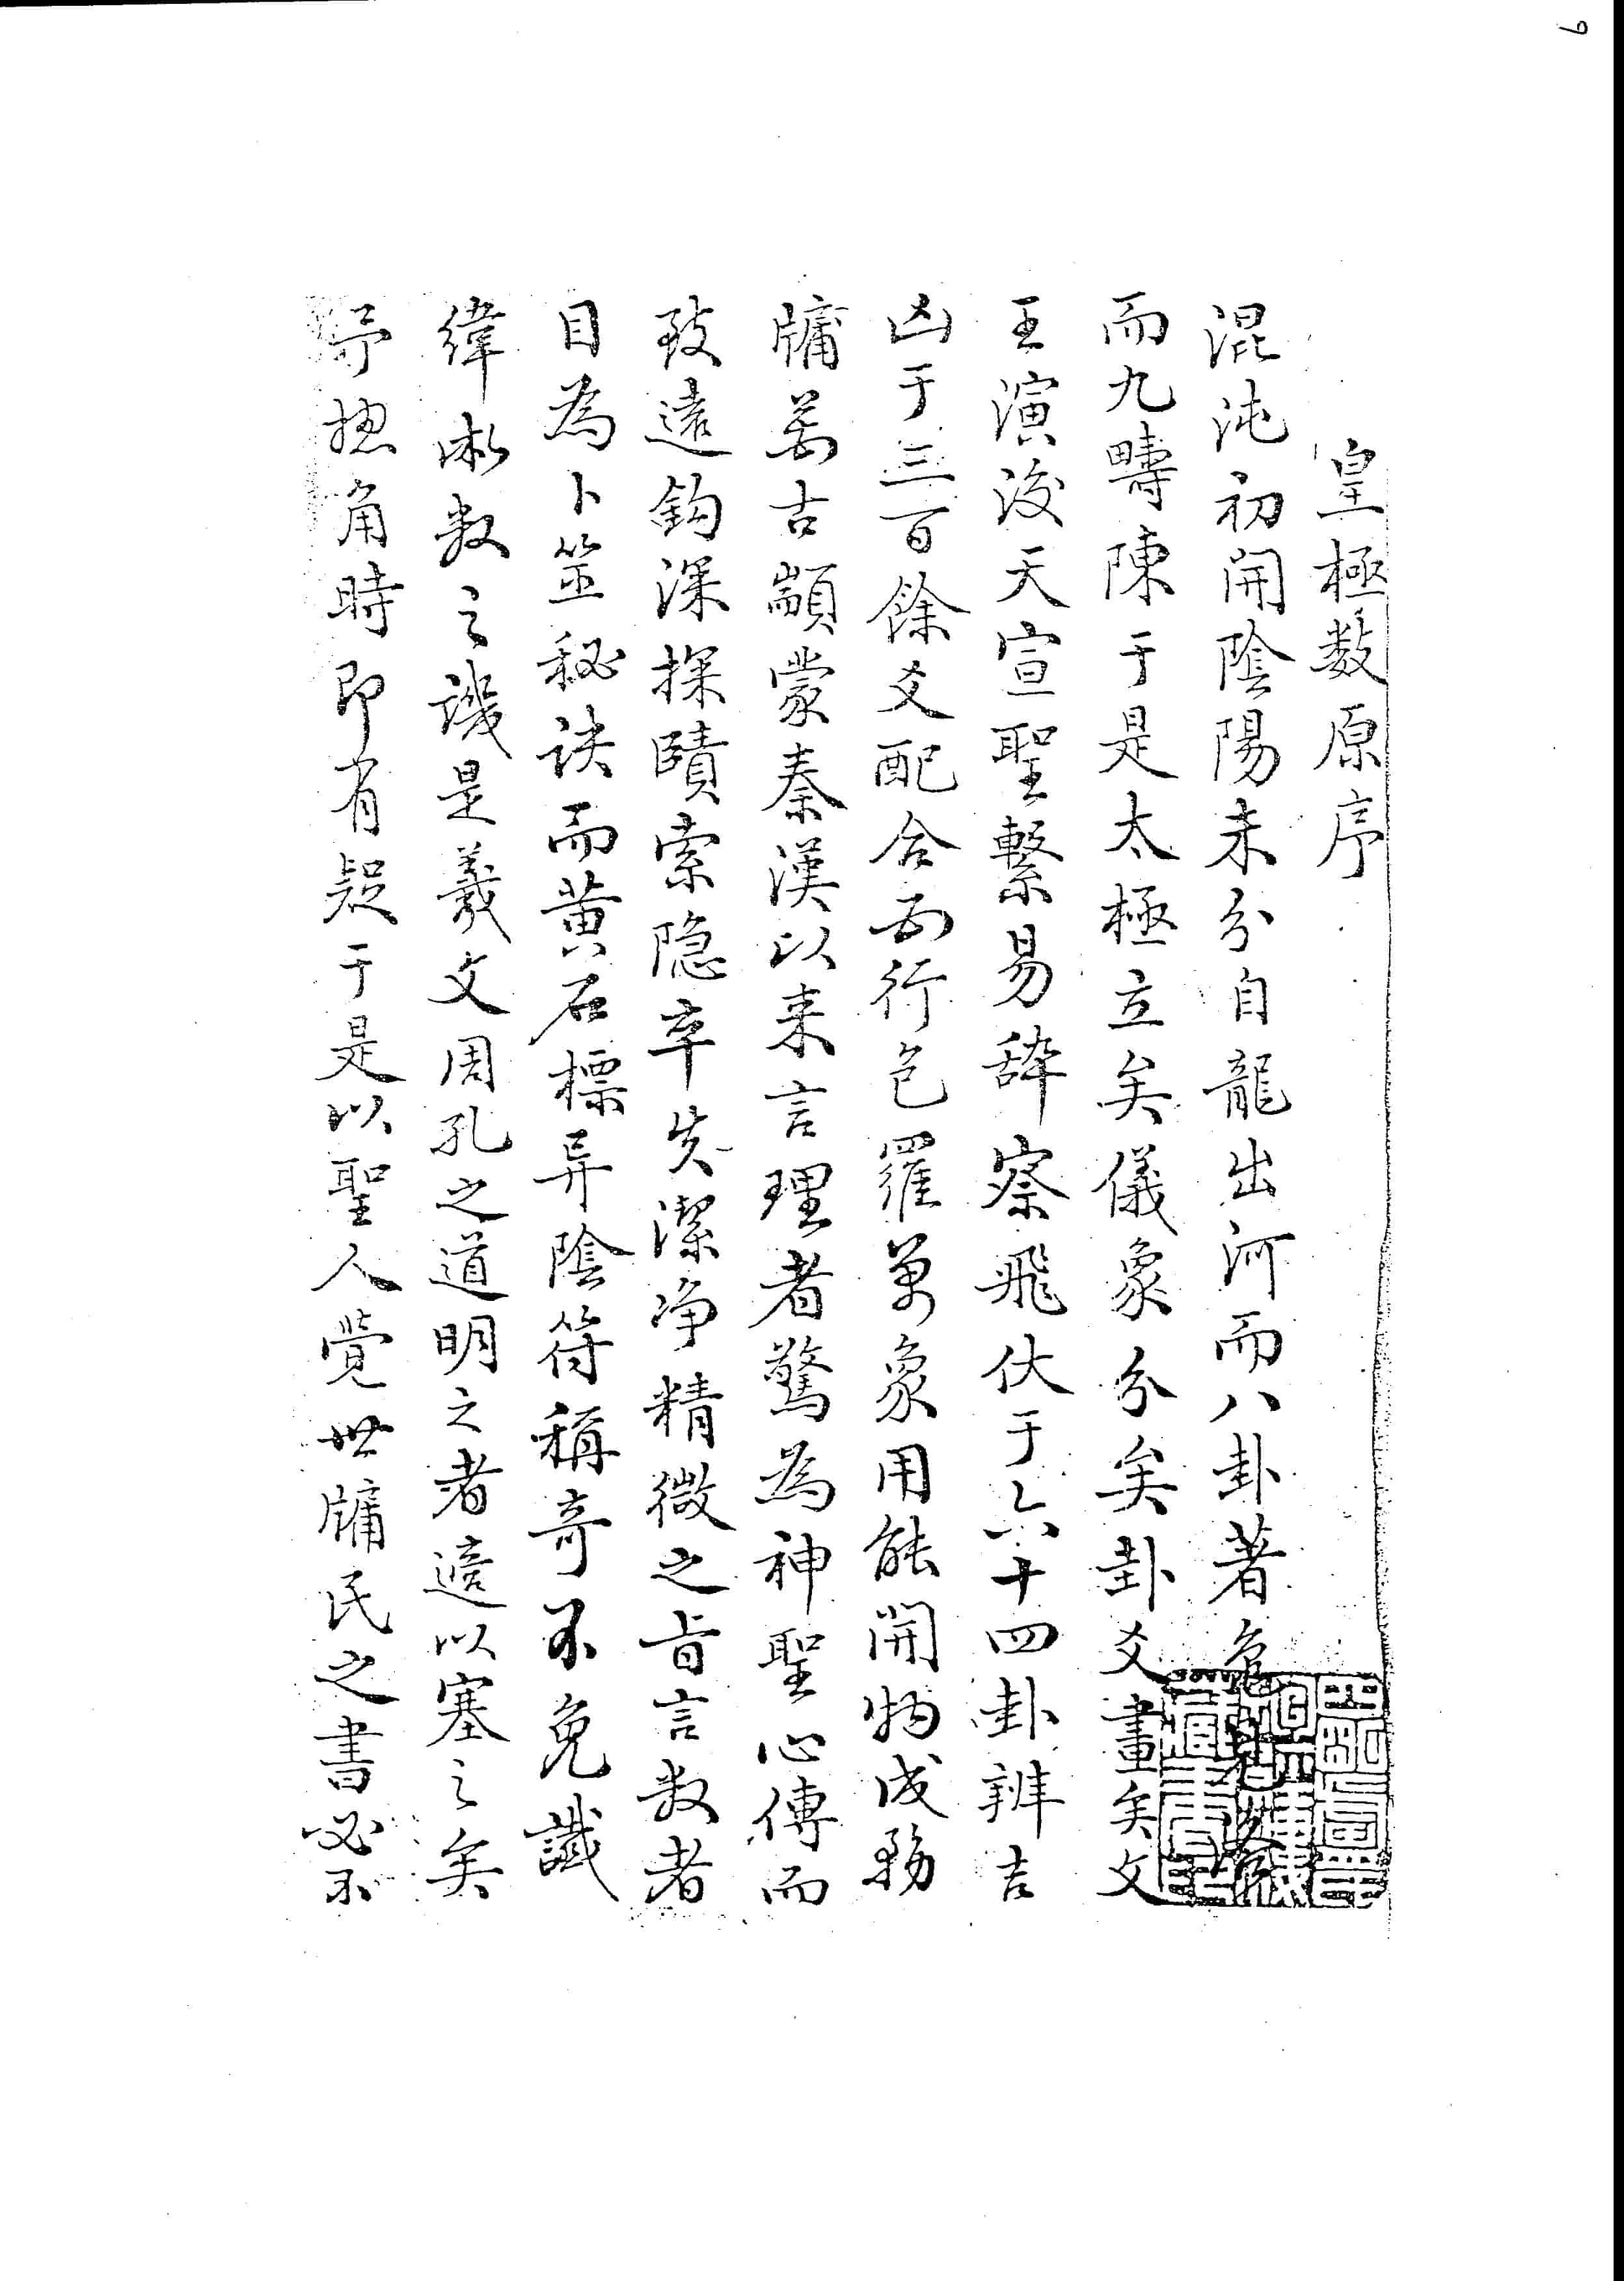 皇極数原序
混沌初開陰陽未分自龍出河而八卦著龜
而九疇陳于是太極立矣儀象分矣卦爻畫矣文
王演後天宣聖繫易辞察飛伏于六十四卦辨吉
凶于三百餘爻配合五行包羅萬象用能開物成務
牖萬古顓蒙秦漢以来言理者驚為神聖心傳而
致遠鈎深探賾索隐卒失潔净精微之旨言数者
目為卜筮秘訣而黄石標异陰符稱奇不免讖
緯術数之譏是羲文周孔之道明之者適以塞之矣
予揔角時即有疑于是以聖人覺世牖民之書必不